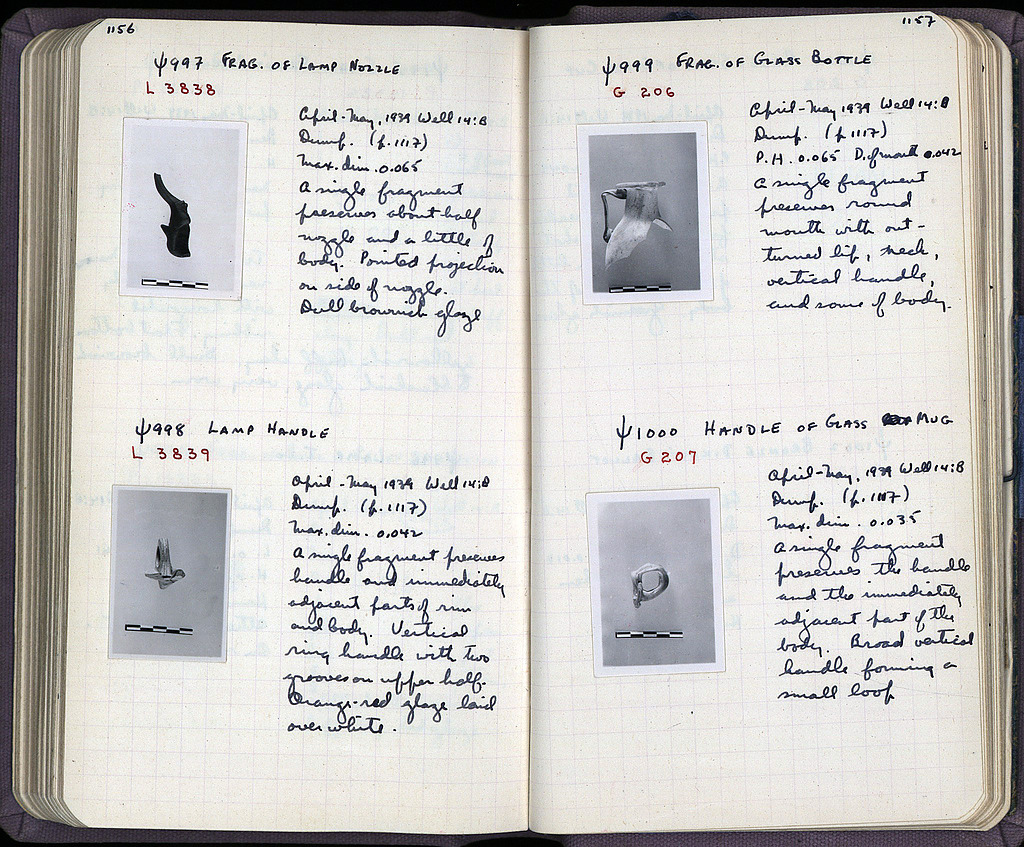 1156
ψ997 FRAG. OF LAMP NOZZLE
L 3838
April-May, 1939 Well 14:B
Dump. (p. 1117)
Max. dim. 0.065
A single fragment
preserves about half
nozzle and a little of
body. Pointed projection
on side of nozzle.
Dull brownish glaze
ψ998 LAMP HANDLE
L 3839
April-May 1939 Well 14:B
Dump. (p. 1117)
Max. dim. 0.042
A single fragment preserves
handle and immediately
adjacent parts of rim
and body. Vertical
ring handle with two
grooves on upper half.
Orange-red glaze laid
over white.
1157
ψ999 FRAG. OF GLASS BOTTLE
G 206
April-May, 1939 Well 14:B
Dump. (p. 1117)
P.H. 0.065 D. of mouth 0.042
A single fragment
preserves round
mouth with out-
turned lip, neck,
vertical handle,
and some of body.
ψ1000 HANDLE OF GLASS MUG
G 207
April-May, 1939 Well 14:B
Dump. (p. 1117)
Max. dim. 0.035
A single fragment
preserves the handle
and the immediately
adjacent part of the
body. Broad vertical
handle forming a
small loop